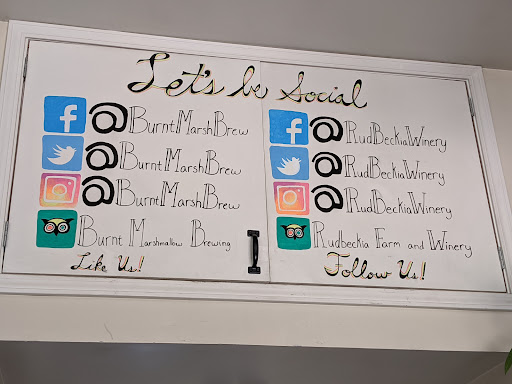 Let's be Social
@BurntMarshBrew
@BurntMarshBrew
@BurntMarshBrew
Burnt Marshmallow Brewing
Like Us!
@RudBeckiaWinery
@RudBeckiaWinery
@RudBeckiaWinery
Rudbeckia Farm and Winery
Follow Us!